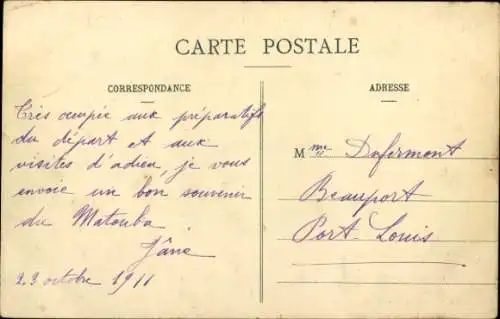 CARTE POSTALE
CORRESPONDANCE
Très occupée aux préparatifs
du départ et aux
visites d'adieu, je vous
envoie un bon souvenir
du Matouba
Jane
23 octobre 1911
ADRESSE
Mme Dufermont
Beauport
Port-Louis